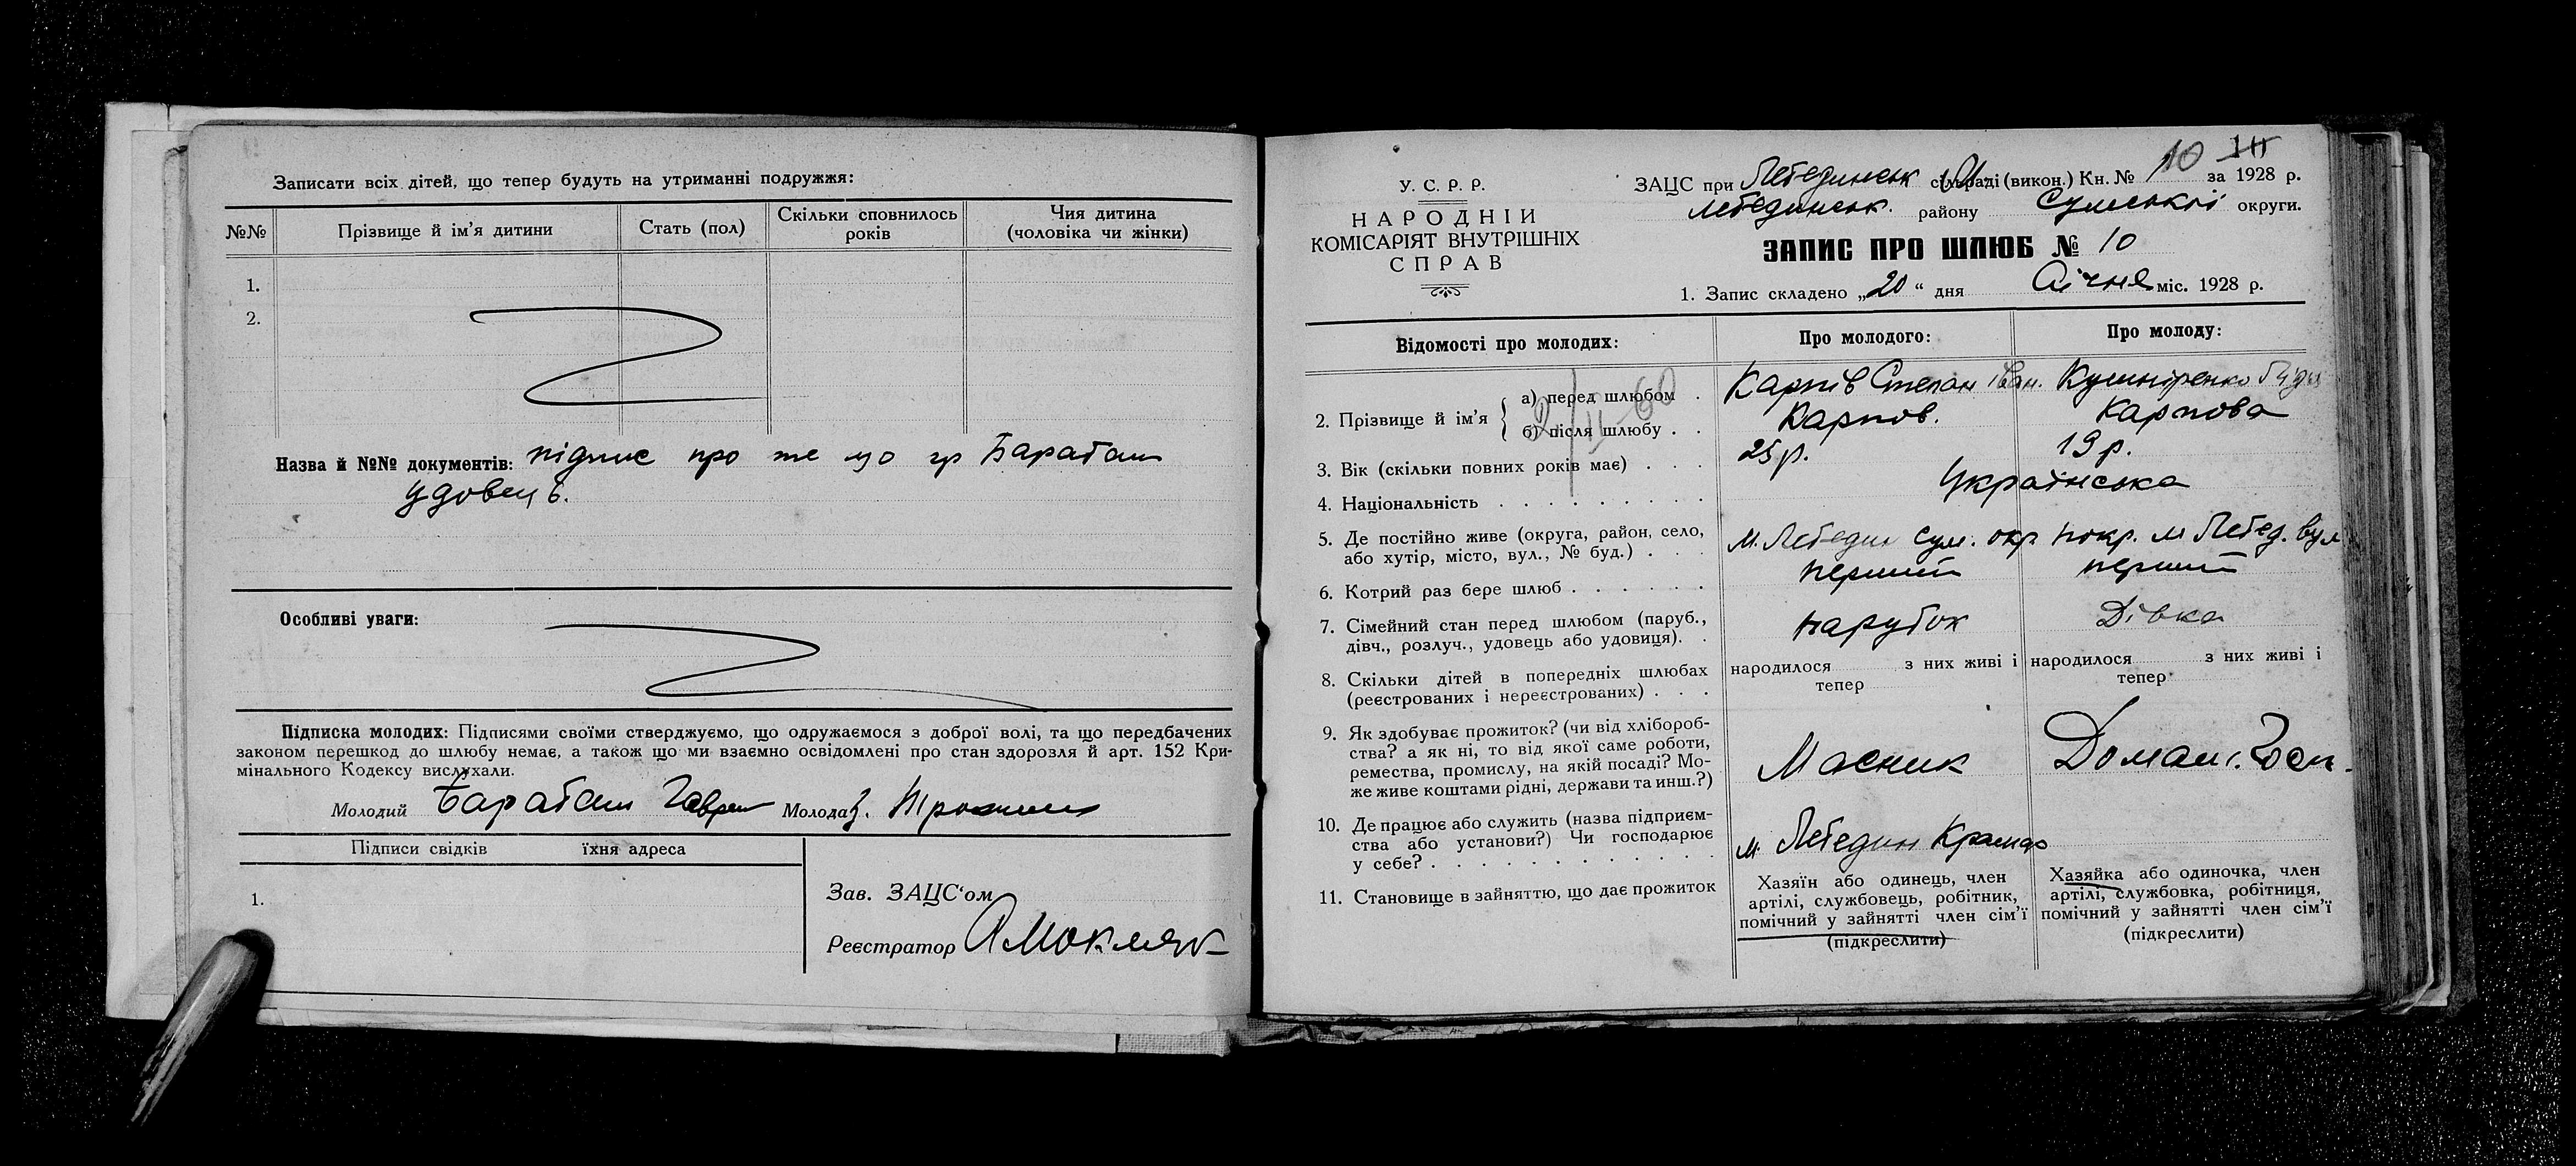 Записати всіх дітей, що тепер будуть на утриманні подружжя:
№№ Прізвище й ім'я дитини Стать (пол) Скільки сповнилось років Чия дитина (чоловіка чи жінки)
1.
2.
Назва й №№ документів: підпис про те що гр Барабаш
удовець.
Особливі уваги:
Підписка молодих: Підписями своїми стверджуємо, що одружаємося з доброї волі, та що передбачених
законом перешкод до шлюбу немає, а також що ми взаємно освідомлені про стан здоровля й арт. 152 Кри-
мінального Кодексу вислухали.
Молодий Барабаш Молода
Підписи свідків їхня адреса
1.
Зав. ЗАЦС'ом
Реєстратор
У. С. Р. Р.
НАРОДНІЙ
КОМІСАРІЯТ ВНУТРІШНІХ
СПРАВ
ЗАЦС при Лебединськ сільраді (викон.) Кн. № 10 за 1928 р.
Лебединськ. району Сумської округи.
ЗАПИС ПРО ШЛЮБ № 10
1. Запис складено „20" дня Січня міс. 1928 р.
Відомості про молодих: Про молодого: Про молоду:
2. Прізвище й ім'я { а) перед шлюбом . Карпів Степан Іван. Кушніренко
б) після шлюбу . . Карпов. Карпова
3. Вік (скільки повних років має) . . . 25 р. 19 р.
4. Національність . . . . . . . . . Українська
5. Де постійно живе (округа, район, село,
або хутір, місто, вул., № буд.) . . . м. Лебедин Сум. окр покр. м Лебед. вул
6. Котрий раз бере шлюб . . . . . . перший перший
7. Сімейний стан перед шлюбом (паруб.,
дівч., розлуч., удовець або удовиця). . парубок Дівка
8. Скільки дітей в попередніх шлюбах
(реєстрованих і нереєстрованих) . . . народилося з них живі і тепер народилося з них живі і тепер
9. Як здобуває прожиток? (чи від хлібороб-
ства? а як ні, то від якої саме роботи,
ремества, промислу, на якій посаді? Мо-
же живе коштами рідні, держави та инш.?) Масник Домаш. Госп.
10. Де працює або служить (назва підприєм-
ства або установи?) Чи господарює
у себе? . . . . . . . . . . . . м. Лебедин
11. Становище в зайняттю, що дає прожиток
Хазяїн або одинець, член
артілі, службовець, робітник,
помічний у зайнятті член сім'ї
(підкреслити)
Хазяйка або одиночка, член
артілі, службовка, робітниця,
помічний у зайнятті член сім'ї
(підкреслити)